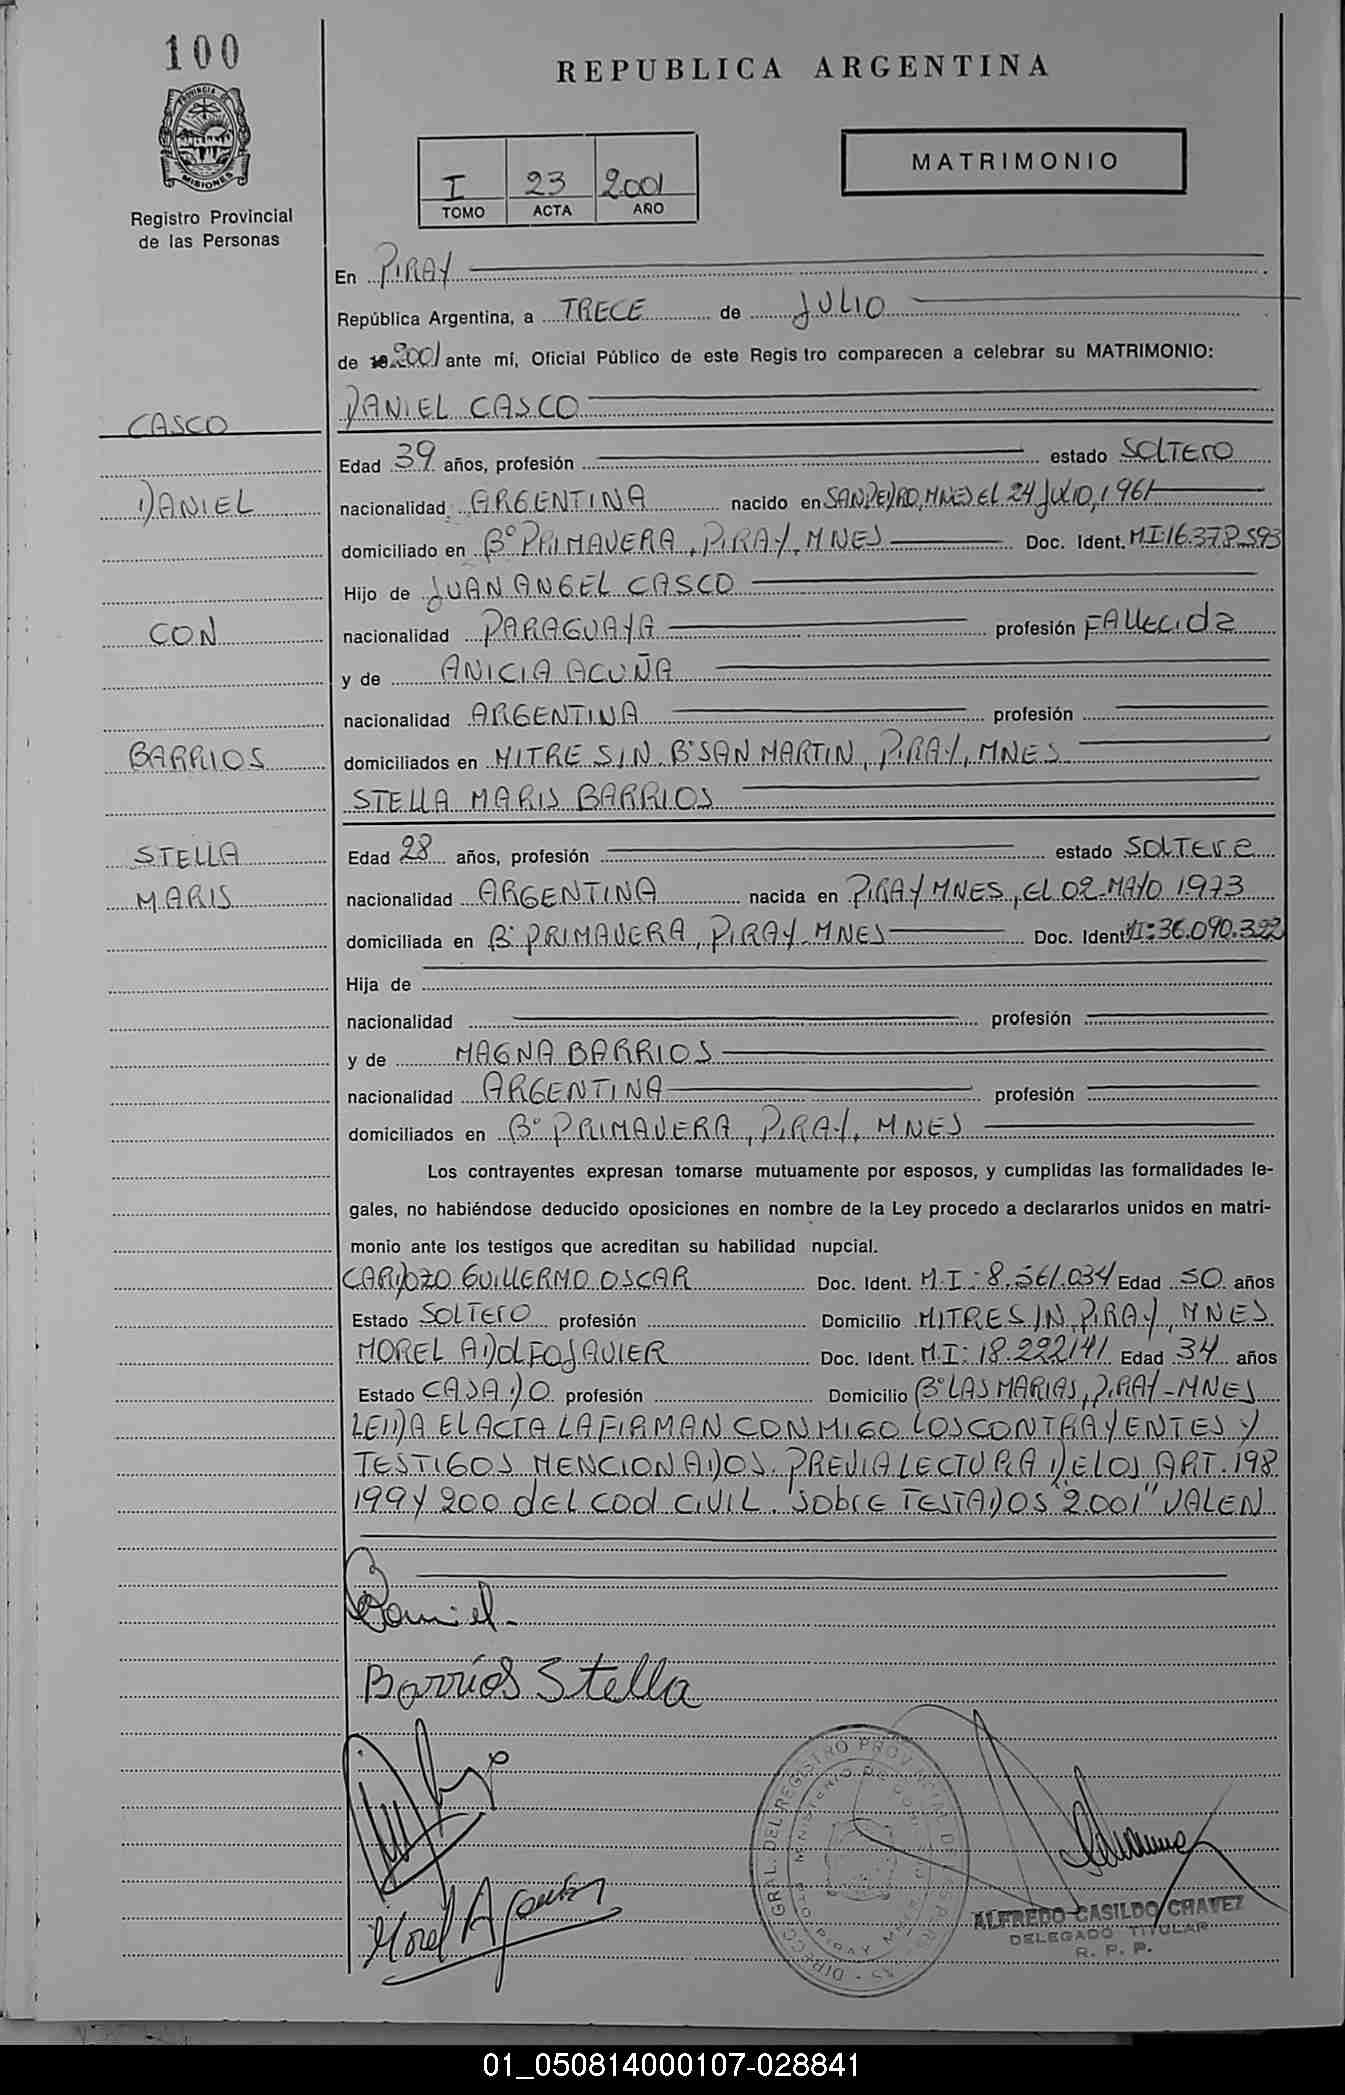 100
PROVINCIA DE
MISIONES
Registro Provincial
de las Personas
REPUBLICA ARGENTINA
MATRIMONIO
I 23 2001
TOMO ACTA AÑO
En PIRAY
República Argentina, a TRECE de JULIO
de 2001 ante mí, Oficial Público de este Registro comparecen a celebrar su MATRIMONIO:
CASCO
DANIEL
CON
BARRIOS
STELLA
MARIS
DANIEL CASCO
Edad 39 años, profesión estado SOLTERO
nacionalidad ARGENTINA nacido en SAN PEDRO, MNES EL 24 JULIO, 1961
domiciliado en B° PRIMAVERA, PIRAY, MNES Doc. Ident. MI:16.378.593
Hijo de JUAN ANGEL CASCO
nacionalidad PARAGUAYA profesión FALLECIDA
y de ANICIA ACUÑA
nacionalidad ARGENTINA profesión
domiciliados en MITRE S/N. B° SAN MARTIN, PIRAY, MNES
STELLA MARIS BARRIOS
Edad 28 años, profesión estado SOLTERA
nacionalidad ARGENTINA nacida en PIRAY MNES, EL 02-MAYO 1973
domiciliada en B° PRIMAVERA, PIRAY-MNES Doc. Ident. MI:36.090.322
Hija de
nacionalidad profesión
y de MAGNA BARRIOS
nacionalidad ARGENTINA profesión
domiciliados en B° PRIMAVERA, PIRAY, MNES
Los contrayentes expresan tomarse mutuamente por esposos, y cumplidas las formalidades le-
gales, no habiéndose deducido oposiciones en nombre de la Ley procedo a declararlos unidos en matri-
monio ante los testigos que acreditan su habilidad nupcial.
CARDOZO GUILLERMO OSCAR Doc. Ident. M.I: 8.561.034 Edad 50 años
Estado SOLTERO profesión Domicilio MITRE S/N, PIRAY, MNES
MOREL ADOLFO JAVIER Doc. Ident. M.I: 18.222141 Edad 34 años
Estado CASADO profesión Domicilio B° LAS MARIAS, PIRAY-MNES
LEIDA EL ACTA LA FIRMAN CONMIGO LOS CONTRAYENTES Y
TESTIGOS MENCIONADOS. PREVIA LECTURA DE LOS ART. 198
199 Y 200 DEL COD CIVIL. SOBRE TESTADOS "2.001" VALEN
Daniel
Barrios Stella
Morel A
ALFREDO CASILDO CHAVEZ
DELEGADO TITULAR
R. P. P.
01_050814000107-028841